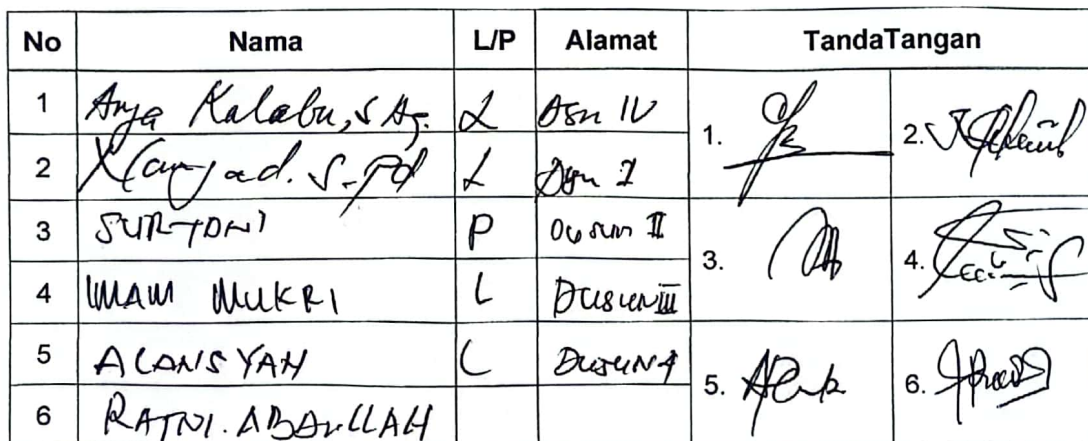 No Nama L/P Alamat TandaTangan
1 Kalabu, S Ag. L Dsn IV 1. 2.
2 S.Pd L Dsn I
3 SURTONI P Dusun II 3. 4.
4 IMAM MUKRI L Dusun III
5 ALANSYAH L Dusun 4 5. 6.
6 RATNI. ABDULLAH